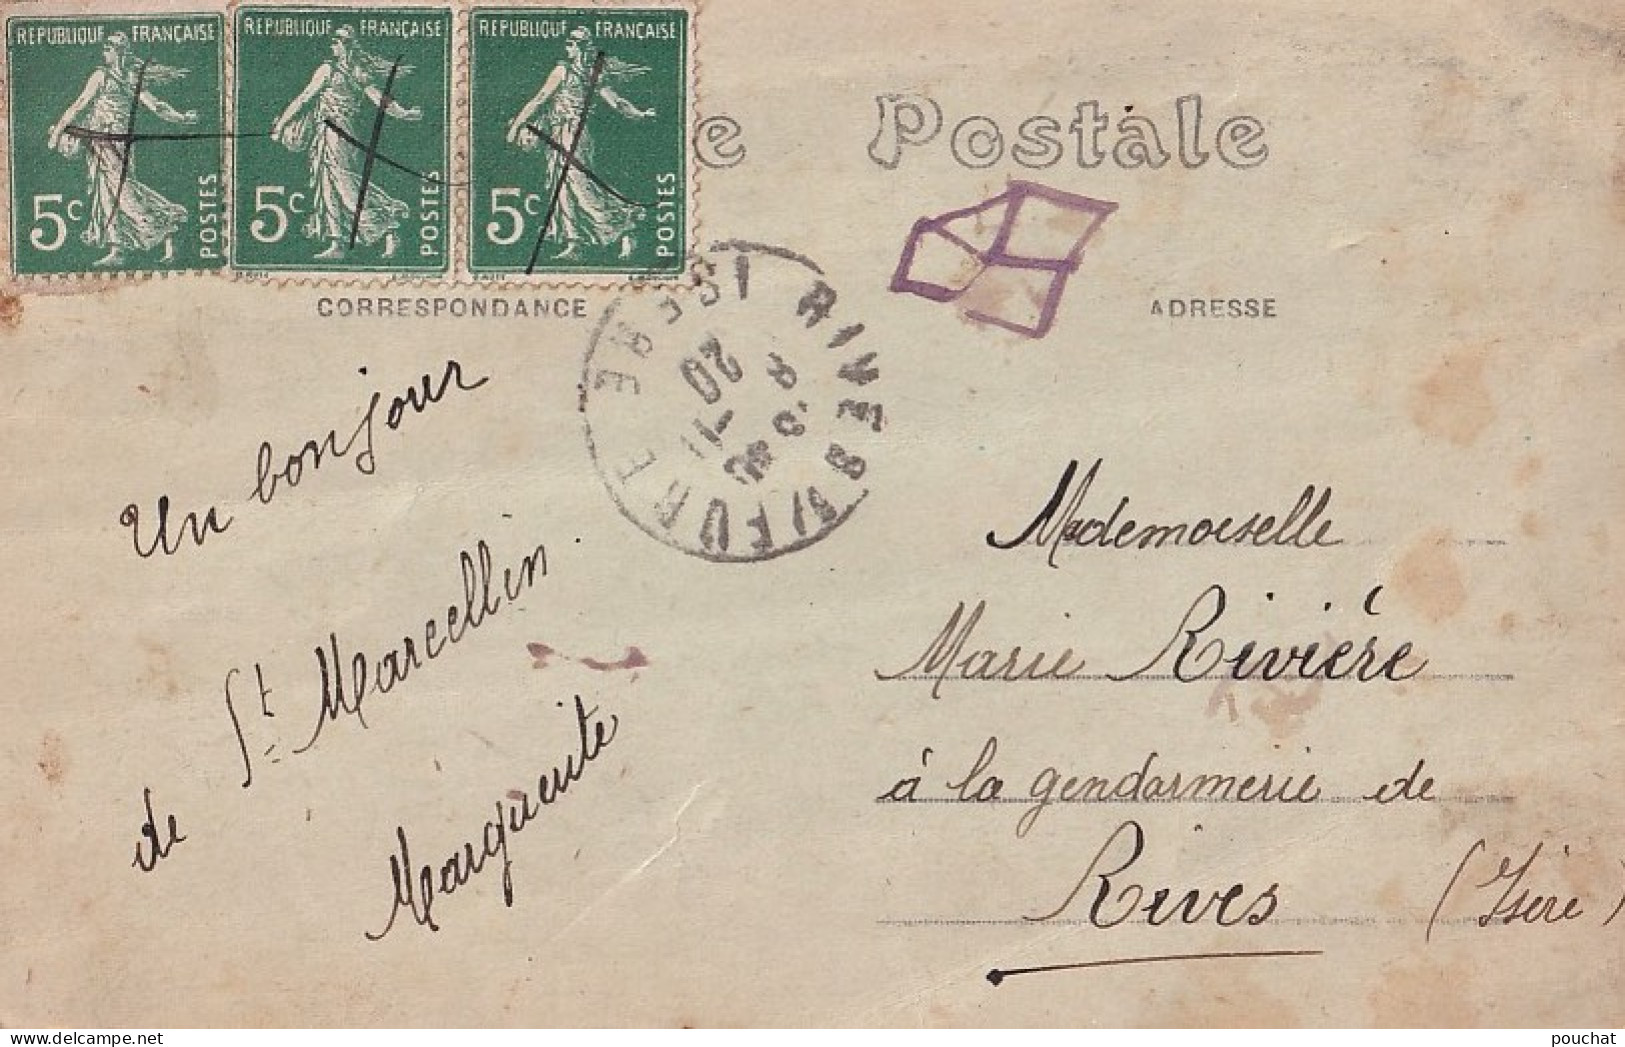 REPUBLIQUE FRANÇAISE
5c POSTES
REPUBLIQUE FRANÇAISE
5c POSTES
REPUBLIQUE FRANÇAISE
5c POSTES
e Postale
CORRESPONDANCE
ADRESSE
RIVES
ISERE
20
Un bonjour
de St Marcellin.
Marguerite
Mademoiselle
Marie Rivière
à la gendarmerie de
Rives (Isère)
pouchat